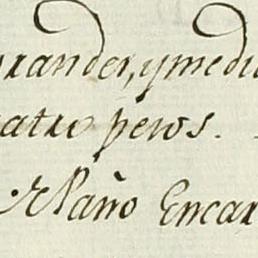 grander, y medi
atro pesos.
Paño Encar